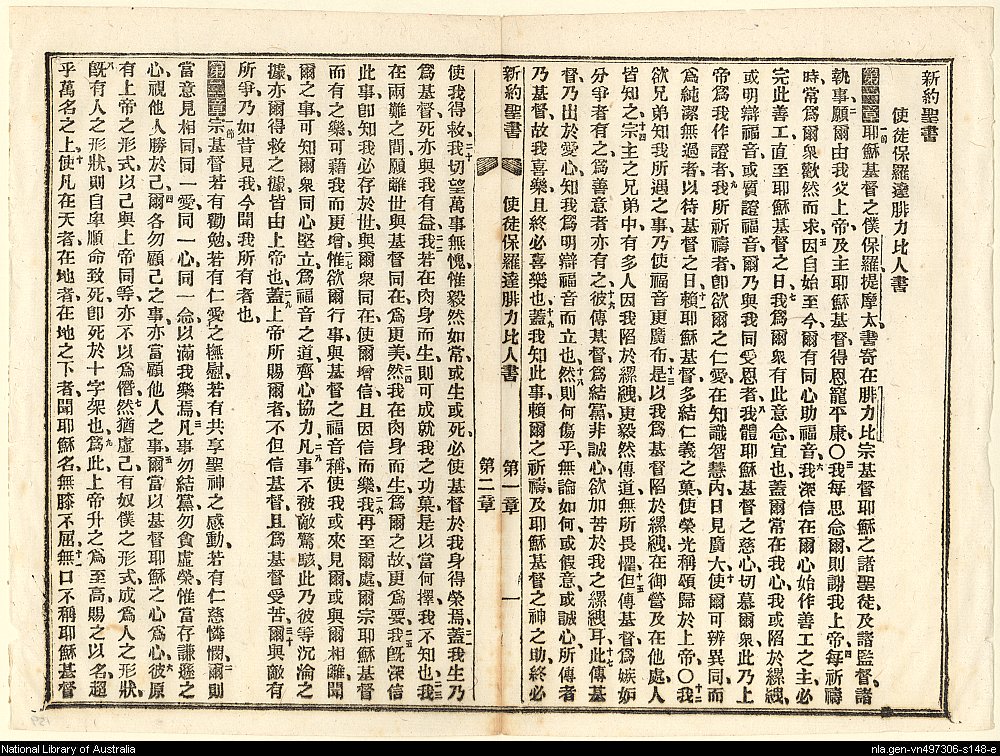 新約聖書
使徒保羅達腓力比人書
第一章一節耶穌基督之僕保羅提摩太書寄在腓力比宗基督耶穌之諸聖徒及諸監督諸
執事二願爾由我父上帝及主耶穌基督得恩寵平康〇三我每思念爾則謝我上帝四每祈禱
時常為爾衆歡然而求五因自始至今爾有同心助福音六我深信在爾心始作善工之主必
完此善工直至耶穌基督之日七我為爾衆有此意念宜也蓋爾常在我心我或陷於縲絏
或明辯福音或質證福音爾乃與我同受恩者八我體耶穌基督之慈心切慕爾衆此乃上
帝為我作證者九我所祈禱者卽欲爾之仁愛在知識智慧內日見廣大十使爾可辨異同而
為純潔無過者以待基督之日十一賴耶穌基督多結仁義之菓使榮光稱頌歸於上帝〇十二我
欲兄弟知我所遇之事乃使福音更廣布十三是以我為基督陷於縲絏在御營及在他處人
皆知之十四宗主之兄弟中有多人因我陷於縲絏更毅然傳道無所畏懼十五但傳基督為嫉妬
分爭者有之為善意者亦有之十六彼傳基督為結黨非誠心欲加苦於我之縲絏耳十七此傳基
督乃出於愛心知我為明辯福音而立也十八然則何傷乎無論如何或假意或誠心所傳者
乃基督故我喜樂且終必喜樂也十九蓋我知此事賴爾之祈禱及耶穌基督之神之助終必
新約聖書 使徒保羅達腓力比人書 第一章 第二章 一
使我得救二十我切望萬事無愧惟毅然如常或生或死必使基督於我身得榮焉二一蓋我生乃
為基督死亦與我有益二二我若在肉身而生則可成就我之功菓是以當何擇我不知也二三我
在兩難之間願離世與基督同在為更美二四然我在肉身而生為爾之故更為要二五我旣深信
此事卽知我必存於世與爾衆同在使爾增信且因信而樂二六我再至爾處爾宗耶穌基督
而有之樂可藉我而更增二七惟欲爾行事與基督之福音稱使我或來見爾或與爾相離聞
爾之事可知爾衆同心堅立為福音之道齊心協力二八凡事不被敵驚駭此乃彼等沉淪之
據亦爾得救之據皆由上帝也二九蓋上帝所賜爾者不但信基督且為基督受苦三十爾與敵有
所爭乃如昔見我今聞我所有者也
第二章一節宗基督若有勸勉若有仁愛之撫慰若有共享聖神之感動若有仁慈憐憫二爾則
當意見相同同一愛同一心同一念以滿我樂焉三凡事勿結黨勿貪虛榮惟當存謙遜之
心視他人勝於己四爾各勿顧己之事亦當顧他人之事五爾當以基督耶穌之心為心六彼原
有上帝之形式以己與上帝同等亦不以為僭七然猶虛己有奴僕之形式成為人之形狀
八旣有人之形狀則自卑順命致死卽死於十字架也九為此上帝升之為至高賜之以名超
乎萬名之上十使凡在天者在地者在地之下者聞耶穌名無膝不屈十一無口不稱耶穌基督
National Library of Australia
nla.gen-vn497306-s148-e